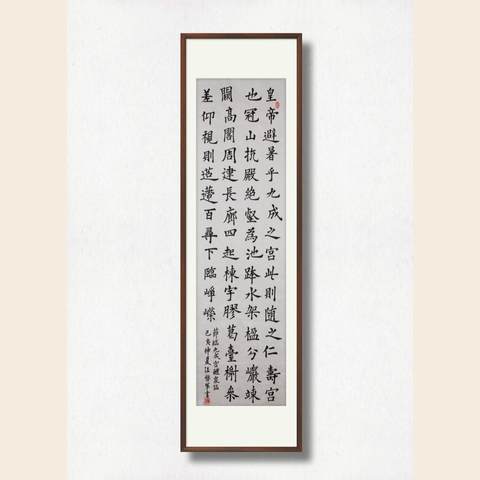 皇帝避暑乎九成之宫此則隨之仁壽宫
也冠山抗殿绝壑為池跨水架楹分巖竦
闕高閣周建長廊四起棟宇膠葛臺榭参
差仰視則迢遰百尋下臨峥嶸
節临九成宫醴泉铭
己亥仲夏汪
書